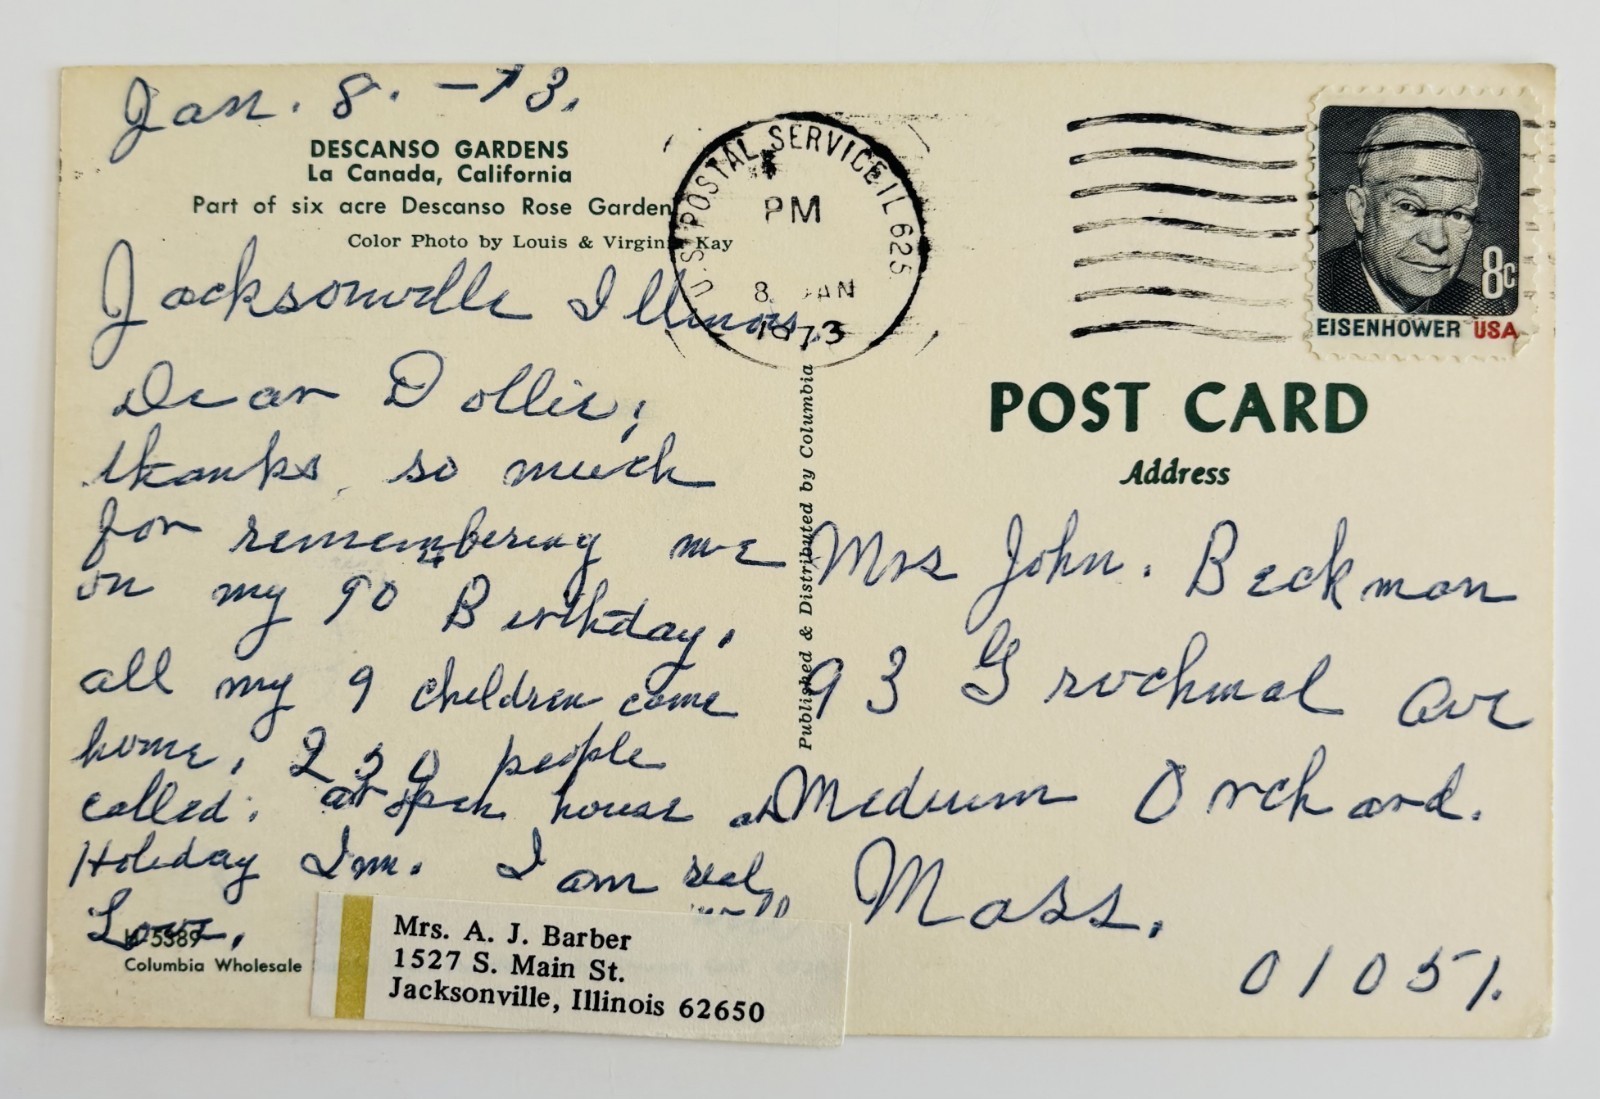 Jan. 8. - 73.
DESCANSO GARDENS
La Canada, California
Part of six acre Descanso Rose Garden
Color Photo by Louis & Virginia Kay
Jacksonville Illinois,
Dear Dollie;
thanks so much
for remembering me
on my 90 Birthday.
all my 9 children come
home, 250 people
called. at open house at
Holiday Inn. I am real
Love,
K-5389
Columbia Wholesale
Mrs. A. J. Barber
1527 S. Main St.
Jacksonville, Illinois 62650
Published & Distributed by Columbia
U.S. POSTAL SERVICE IL 625
PM
8 JAN
1973
8c
EISENHOWER USA
POST CARD
Address
Mrs John. Beckman
93 Grochmal Ave
Medium Orchard.
Mass.
01051.